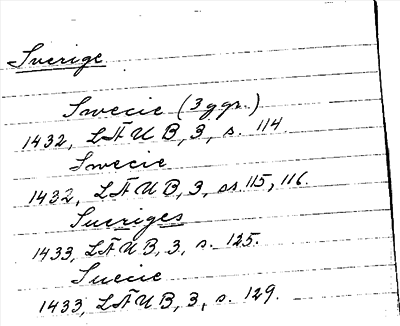 Sverige
Swecie (3 ggr.)
1432, LÄUB, 3, s. 114.
Swecie
1432, LÄUB, 3, ss 115, 116.
Sueriges
1433, LÄUB, 3, s. 125.
Suecie
1433, LÄUB, 3, s. 129.